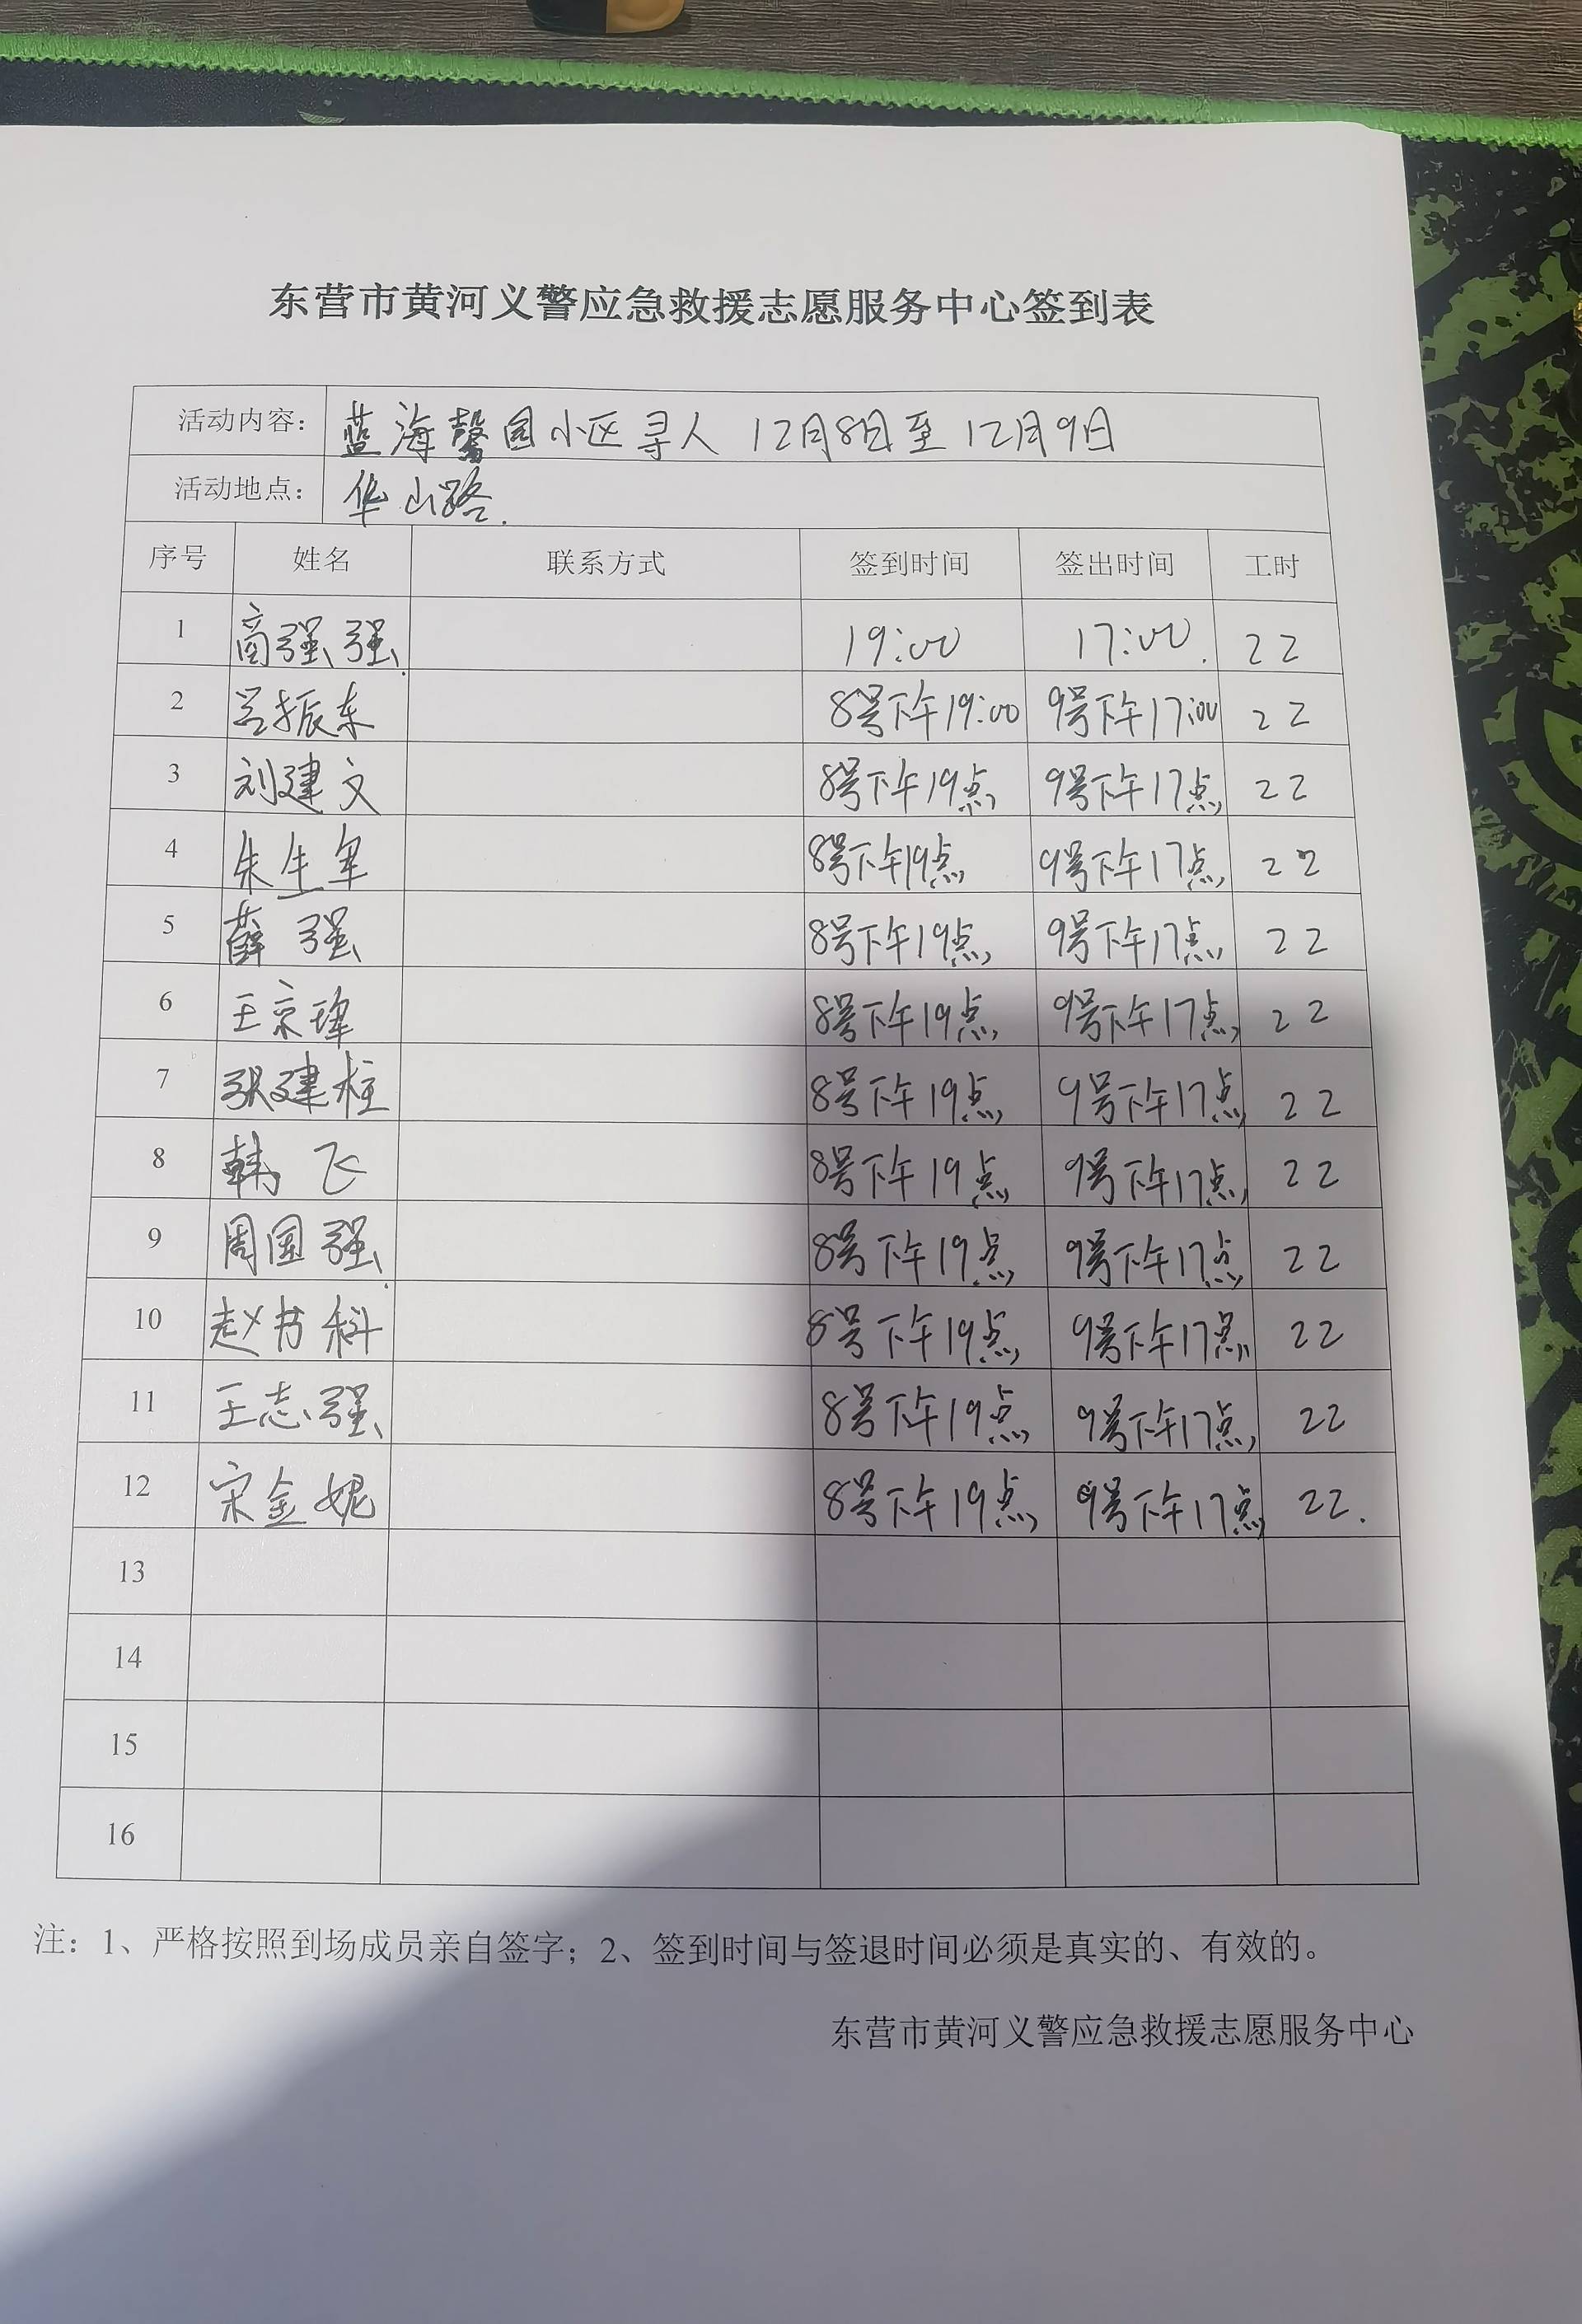 东营市黄河义警应急救援志愿服务中心签到表
活动内容： 蓝海馨园小区寻人 12月8日至12月9日
活动地点： 华山路.
序号 姓名 联系方式 签到时间 签出时间 工时
1 商强强 19:00 17:00. 22
2 吕振东 8号下午19:00 9号下午17:00 22
3 刘建文 8号下午19点 9号下午17点 22
4 朱生军 8号下午19点 9号下午17点 22
5 薛强 8号下午19点 9号下午17点 22
6 王京 8号下午19点 9号下午17点 22
7 张建柱 8号下午19点 9号下午17点 22
8 韩飞 8号下午19点 9号下午17点 22
9 周国强 8号下午19点 9号下午17点 22
10 赵书科 8号下午19点 9号下午17点 22
11 王志强 8号下午19点 9号下午17点 22
12 宋金妮 8号下午19点 9号下午17点 22.
13
14
15
16
注：1、严格按照到场成员亲自签字；2、签到时间与签退时间必须是真实的、有效的。
东营市黄河义警应急救援志愿服务中心